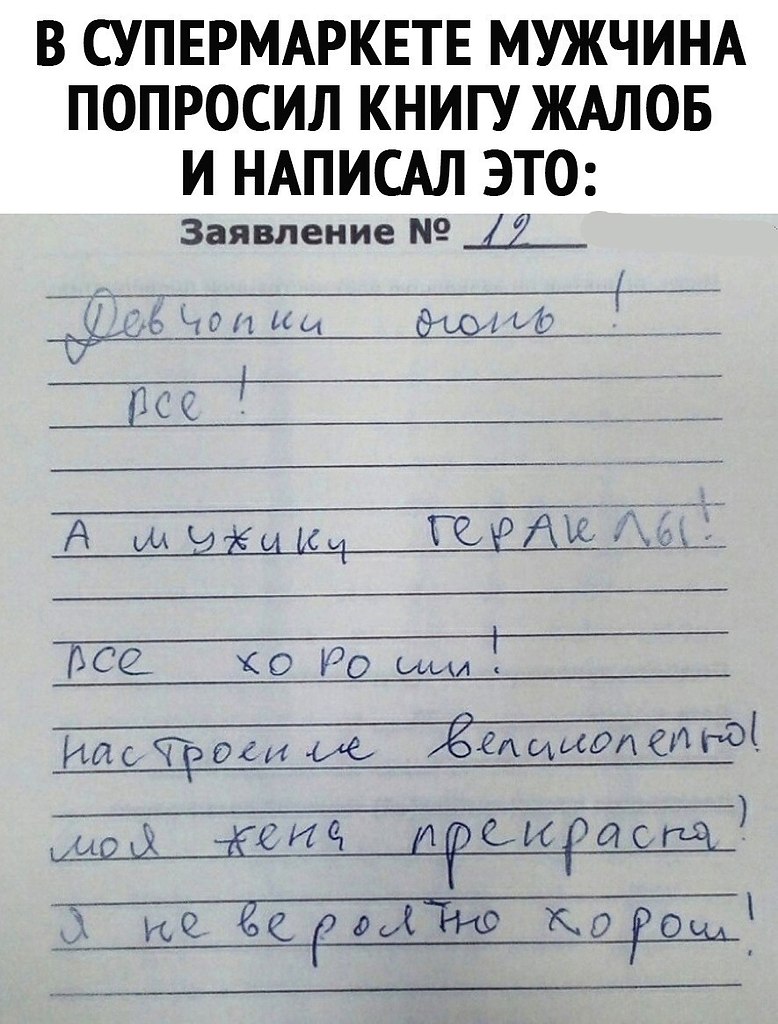 В СУПЕРМАРКЕТЕ МУЖЧИНА
ПОПРОСИЛ КНИГУ ЖАЛОБ
И НАПИСАЛ ЭТО:
Заявление № 12
Девчонки огонь!
все!
А мужики гераклы!
все хороши!
настроение великолепно!
моя жена прекрасна!
я не вероятно хорош!